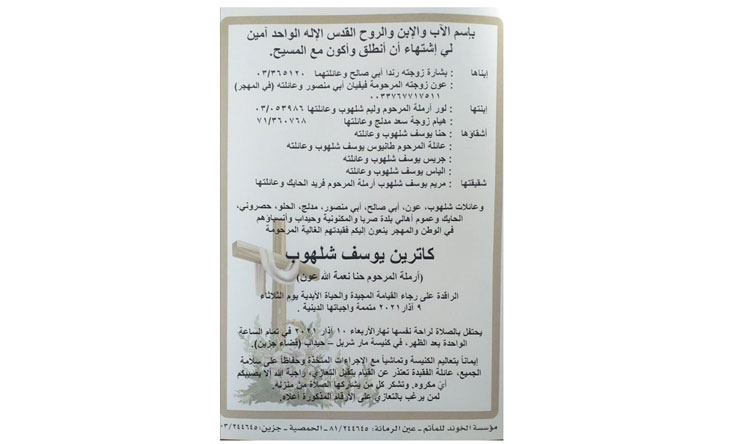 بإسم الآب والإبن والروح القدس الإله الواحد آمين
لي إشتهاء أن أنطلق وأكون مع المسيح.
إبناها : بشارة زوجته رندا أبي صالح وعائلتهما ٠٣/٣٦٥١٢٠
: عون زوجته المرحومة فيفيان أبي منصور وعائلته (في المهجر)
٠٠٣٣٧٦٧٧١٧٥١١
إبنتها : لور أرملة المرحوم وليم شلهوب وعائلتها ٠٣/٠٥٣٩٨٦
: هيام زوجة سعد مدلج وعائلتها ٧١/٣٦٠٧٦٨
أشقاؤها : حنا يوسف شلهوب وعائلته
: عائلة المرحوم طانيوس يوسف شلهوب وعائلته
: جريس يوسف شلهوب وعائلته
: الياس يوسف شلهوب وعائلته
شقيقتها : مريم يوسف شلهوب أرملة المرحوم فريد الحايك وعائلتها
وعائلات شلهوب، عون، أبي صالح، أبي منصور، مدلج، الحلو، حصروني،
الحايك وعموم أهالي بلدة صربا والمكنونية وحيداب وأنسباؤهم
في الوطن والمهجر ينعون إليكم فقيدتهم الغالية المرحومة
كاترين يوسف شلهوب
(أرملة المرحوم حنا نعمة الله عون)
الراقدة على رجاء القيامة المجيدة والحياة الأبدية يوم الثلاثاء
٩ آذار ٢٠٢١ متممة واجباتها الدينية .
يحتفل بالصلاة لراحة نفسها نهار الأربعاء ١٠ آذار ٢٠٢١ في تمام الساعة
الواحدة بعد الظهر، في كنيسة مار شربل - حيداب (قضاء جزين).
إيماناً بتعاليم الكنيسة وتماشياً مع الإجراءات المتخذة وحفاظاً على سلامة
الجميع، عائلة الفقيدة تعتذر عن القيام بتقبل التعازي، راجية الله ألا يصيبكم
أي مكروه. وتشكر كل من يشاركها الصلاة من منزله.
لمن يرغب بالتعازي على الأرقام المذكورة أعلاه.
مؤسسة الخوند للمآتم - عين الرمانة: ٨١/٢٤٤٦٤٥ - الحمصية - جزين: ٠٣/٢٤٤٦٤٥